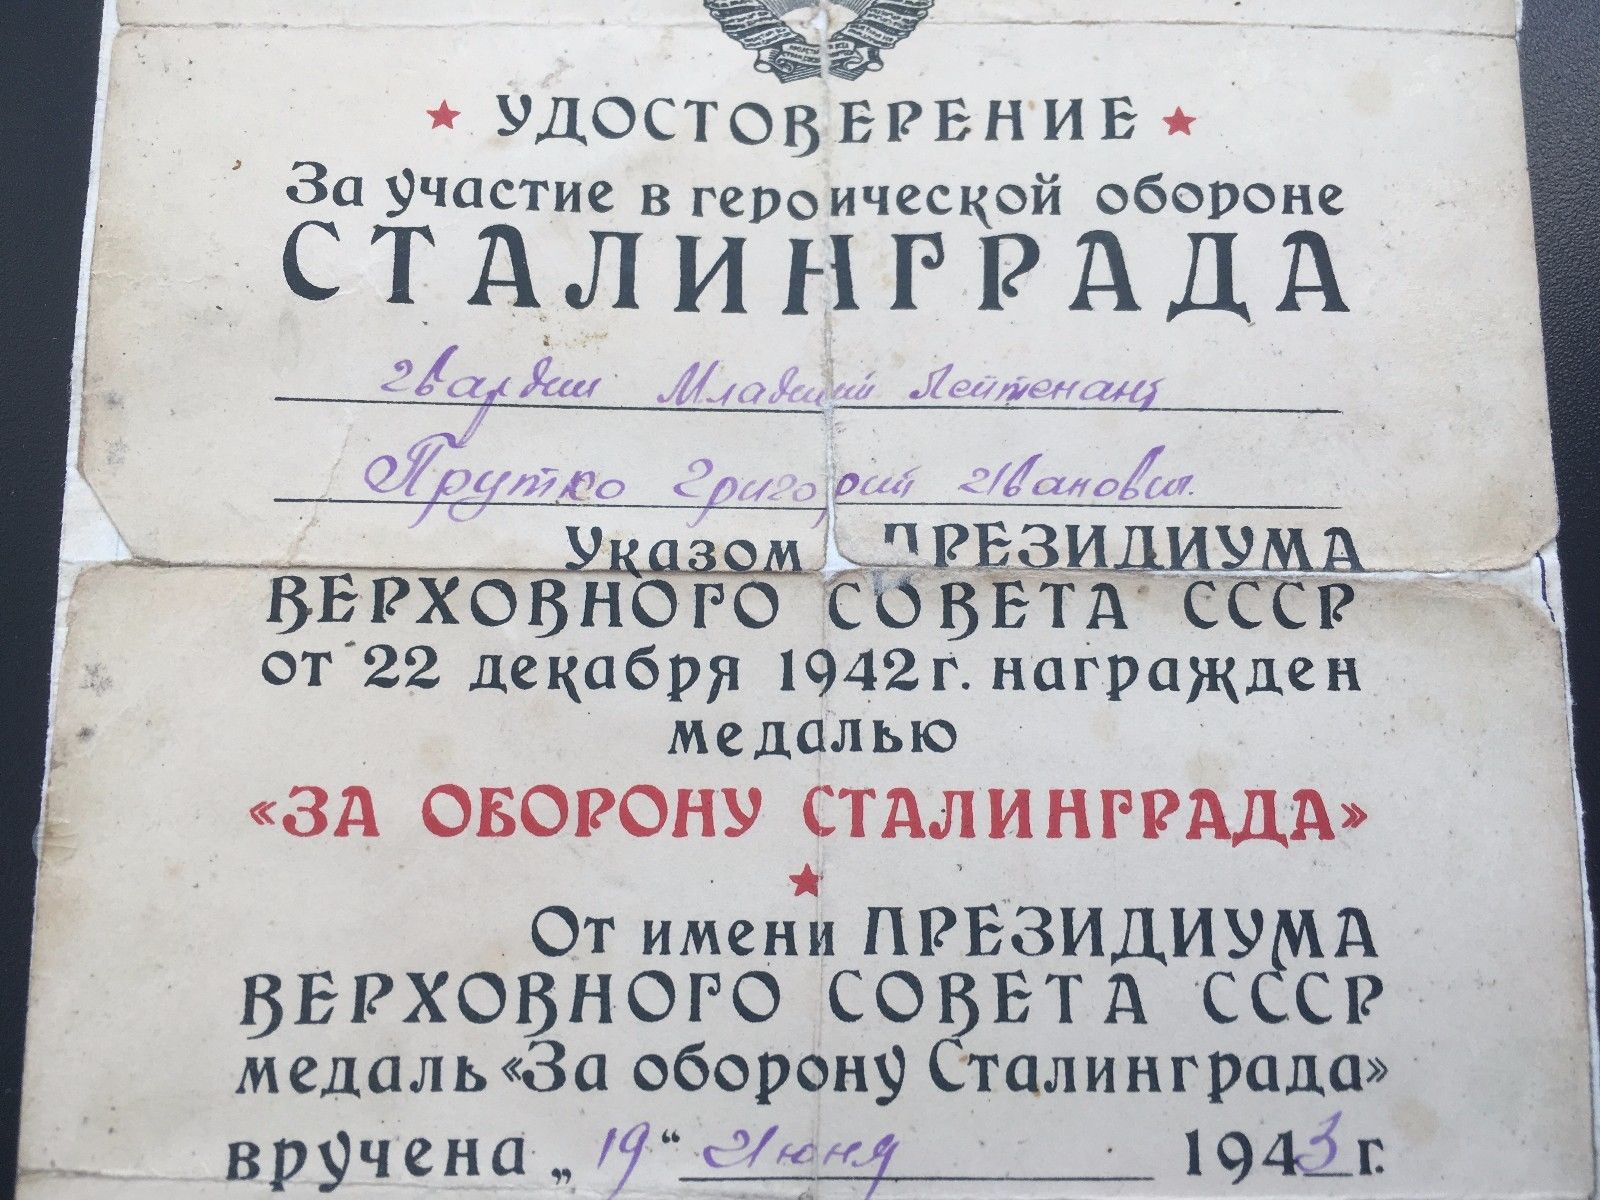 УДОСТОВЕРЕНИЕ
За участие в героической обороне
СТАЛИНГРАДА
Гвардии Младший Лейтенант
Прутко Григорий Иванович.
Указом ПРЕЗИДИУМА
ВЕРХОВНОГО СОВЕТА СССР
от 22 декабря 1942 г. награжден
медалью
«ЗА ОБОРОНУ СТАЛИНГРАДА»
От имени ПРЕЗИДИУМА
ВЕРХОВНОГО СОВЕТА СССР
медаль «За оборону Сталинграда»
вручена „19“ Июня 1943 г.